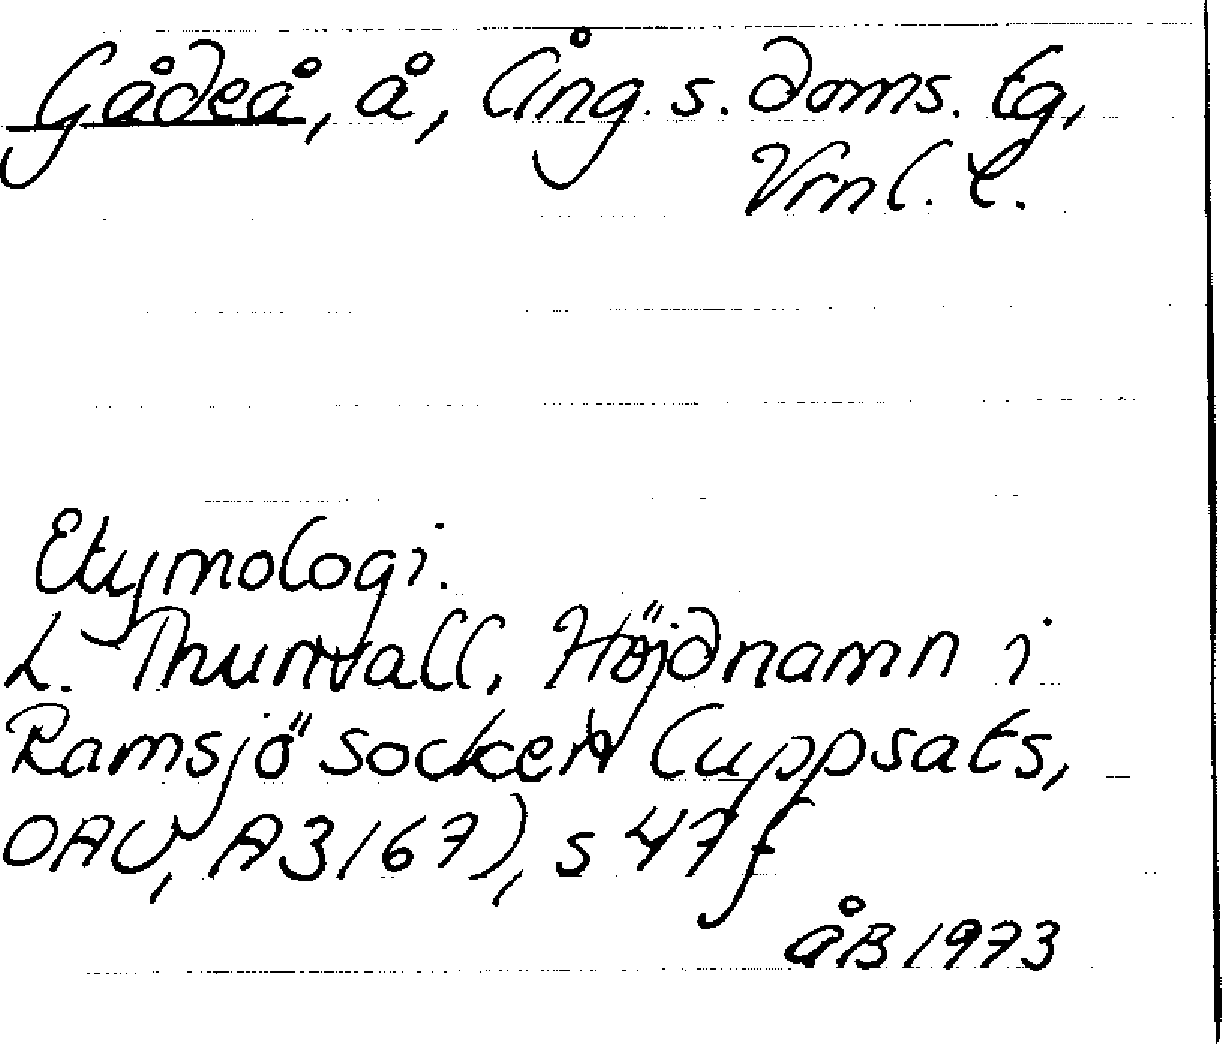 Gådeå, å, Ång. s. doms. tg,
Vrnl. l.
Etymologi.
L. Thunvall, Höjdnamn i
Ramsjö socken (uppsats,
OAU, A3167), s 47 f
åB 1973